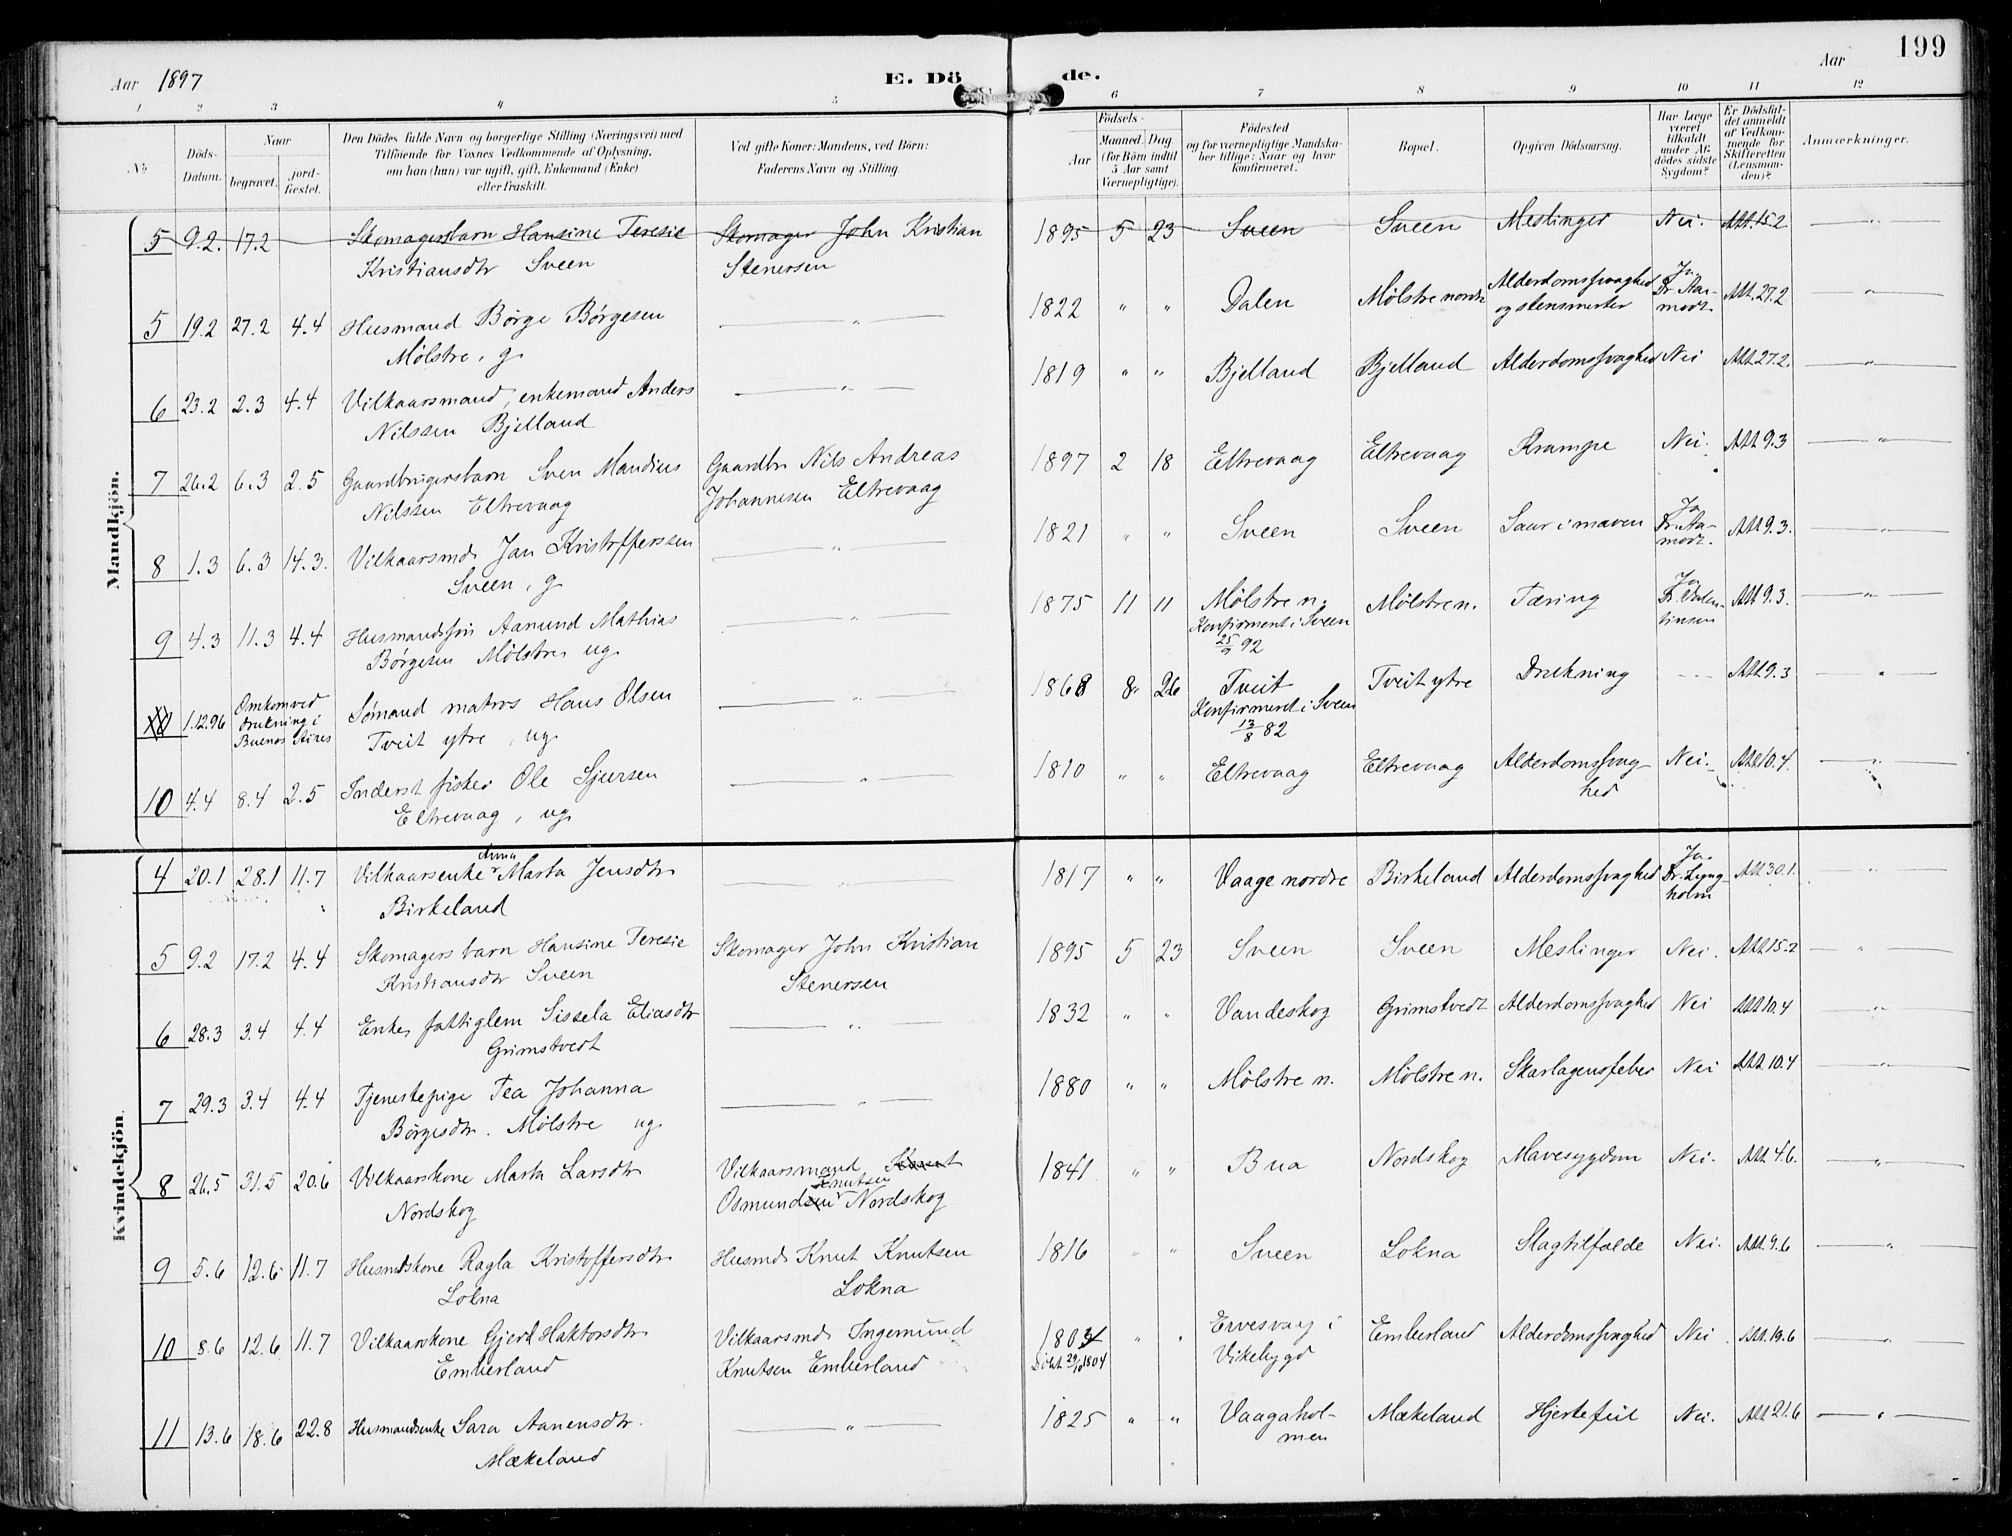 Aar 1897 E. Dö de. Aar 199
1 2 3 4 5 6 7 8 9 10 11 12
No
Döds-Datum.
Naar
begravet.
jordfæstet.
Den Dödes fulde Navn og borgerlige Stilling (Næringsvei) med
Tilföiende for Voxnes Vedkommende af Oplysning,
om han (hun) var ugift, gift, Enkemand (Enke)
eller fraskilt.
Ved gifte Koner: Mandens, ved Börn:
Faderens Navn og Stilling.
Födsels-
Aar
Maaned. Dag.
(for Börn indtil
5 Aar samt
Værnepligtige).
Födested
og for værnepligtige Mandska-
ber tillige: Naar og hvor
konfirmeret.
Bopæl.
Opgiven Dödsaarsag.
Har Læge
været
tilkaldt
under Af-
dödes sidste
Sygdom?
Er Dödsfal-
det anmeldt
af Vedkom-
mende for
Skifteretten
(Lensman-
den)?
Anmærkninger.
Mandkjön.
5 9.2. 17.2 Skomagersbarn Hansine Teresie Skomager John Kristian 1895 5 23 Sveen Sveen Meslinger Nei. Att. 15.2 "
Kristiansdtr Sveen Stenersen
5 19.2 27.2 4.4 Husmand Börge Børgesen " 1822 " " Dalen Mølstre nordre Alderdomssvaghed Ja Dr. Aa- Att. 27.2 "
Mølstre, g. og stensmerter modt.
6 23.2 2.3 4.4 Vilkaarsmand, enkemand Anders " 1819 " " Bjelland Bjelland Alderdomssvaghed Nei Att. 27.2. "
Nilssen Bjelland
7 26.2 6.3 2.5 Gaardbrugersbarn Sven Mandius Gaardbr Nils Andreas 1897 2 18 Eltrevaag Eltrevaag Krampe Nei. Att 9.3 "
Nilssen Eltrevaag Johannesen Eltrevaag
8 1.3 6.3 14.3. Vilkaarsmd. Jan Kristoffersen " 1821 " " Sveen Sveen Saar i maven Ja Dr. Aa- Att 9.3. "
Sveen, g. modt.
9 4.3 11.3 4.4 Husmandssøn Aanund Mathias " 1875 11 11 Mølstre n. Mølstre n. Tæring Ja Att 9.3. "
Børgesen Mølstre, ug. Konfirmeret i Sveen
25/9 92
1.12.96 Omkom ved Sømand matros Hans Olsen " 1868 8 26 Tveit Tveit ytre Drukning Att 9.3 "
drukning i Tveit ytre, ug. Konfirmeret i Sveen
Buenos Aires 13/8 82
10 4.4 8.4 2.5 Inderst fisker Ole Sjursen " 1810 " " Eltrevaag Eltrevaag Alderdomssvag- Nei. Att 10.4. "
Eltrevaag, ug. hed
Kvindekjön.
4 20.1 28.1 11.7 Vilkaarsenke Anna Marta Jensdtr " 1817 " " Vaage nordre Birkeland Alderdomssvaghed Ja. Dr. Lyng- Att 30.1. "
Birkeland holm
5 9.2 17.2 4.4 Skomagersbarn Hansine Teresie Skomager John Kristian 1895 5 23 Sveen Sveen Meslinger Nei. Att 15.2 "
Kristiansdtr Sveen Stenersen
6 28.3 3.4 4.4 Enke, fattiglem Sissela Eliasdtr " 1832 " " Vandeskog Grimstvedt Alderdomssvaghed Nei Att 10.4 "
Grimstvedt
7 29.3 3.4 4.4 Tjenestepige Tea Johanna " 1880 " " Mølstre n. Mølstre n. Skarlagensfeber Nei Att. 10.4 "
Børgesdtr. Mølstre ug.
8 26.5 31.5 20.6 Vilkaarskone Marta Larsdtr Vilkaarsmand Knut 1841 " " Bua Nordskog Mavesygdom Nei. Att. 4.6. "
Nordskog Osmundsen Knutsen Nordskog
9 5.6 12.6 11.7 Husmdskone Ragla Kristoffersdtr Husmd. Knut Knutsen 1816 " " Sveen Lokna Slagtilfælde Nei. Att. 9.6 "
Lokna Lokna
10 8.6 12.6 11.7 Vilkaarskone Gjert Haktorsdtr Vilkaarsmd. Ingemund 1804 " " Ervesvaag i Emberland Alderdomssvaghed Nei Att. 19.6 "
Emberland Knutsen Emberland Døbt 29/10 1804 Vikebygd
11 13.6 18.6 22.8 Husmandsenke Sara Aanensdtr. " 1825 " " Vaagahol- Mækeland Hjertefeil Nei. Att 21.6 "
Mækeland men